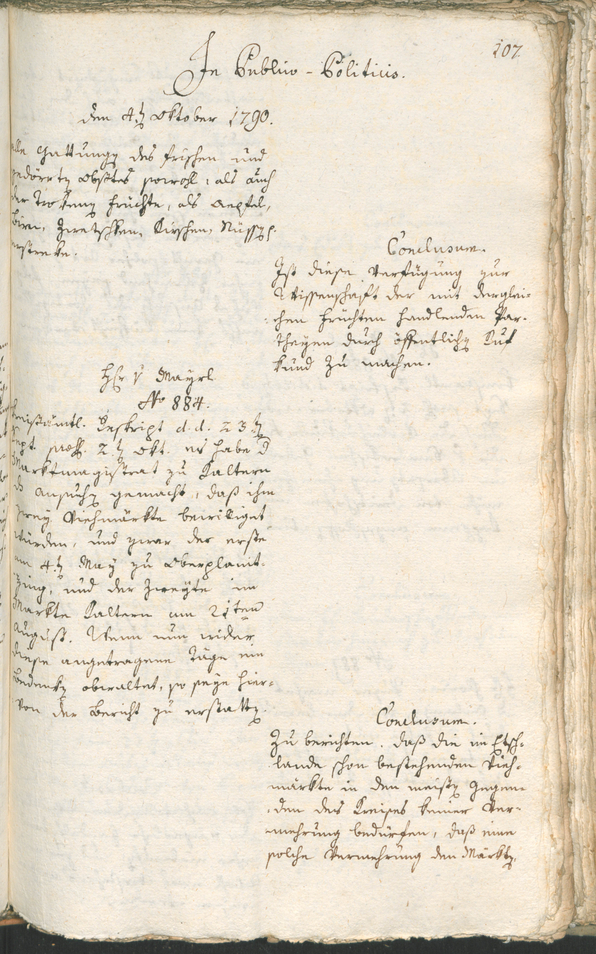 107.
In Publico-Politicis.
den 4ten Oktober 1790.
alle Gattungen des frischen und
gedörrten Obstes sowohl, als auch
der trokenen Früchte, als Aepfel,
Birn, Zwetschken, Kirschen, Nüssen
erstreke.
Conclusum.
Ist diese Verfügung zur
Wissenschaft der mit derglei-
chen Früchten handlenden Par-
theyen durch öffentlichen Ruf
kund zu machen.
Hr v Mayrl
No 884.
Kreisämtl. Reskript d. d. 23ten
Sept. praes. 2ten Okt. es habe d
Marktmagistrat zu Kaltern
das Ansuchen gemacht, daß ihm
zwey Viehmärkte bewilliget
würden, und zwar der erste
am 4ten May zu Oberplanit-
zing, und der Zweyte im
Markte Kaltern am 21ten
August. Wenn nun wider
diese angetragene Täge ein
Bedenken obwaltet, so seye hier-
von der Bericht zu erstatten.
Conclusum.
Zu berichten, daß die im Etsch-
lande schon bestehenden Vieh-
märkte in den meisten Gegen-
den des Kreises keiner Ver-
mehrung bedürfen, daß eine
solche Vermehrung den Märkten,